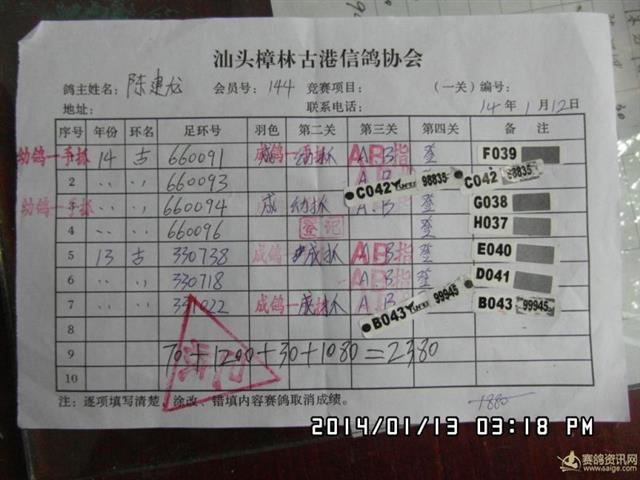 汕头樟林古港信鸽协会
鸽主姓名: 陈建龙 会员号: 144 竞赛项目: (一关) 编号:
地址: 联系电话: 14 年 1 月 12 日
序号 年份 环名 足环号 羽色 第二关 第三关 第四关 备 注
幼鸽一手抓 14 古 660091 成鸽一 幼抓 A B 指 登 F039
2 660093 A.B 登 C042 98835 C042 98835
幼鸽一手抓 660094 成 幼抓 A.B 登 G038
4 660096 登记 登 H037
5 13 古 330738 成鸽 成抓 A B 指 登 E040
6 330718 A B 指 登 D041
7 022 成鸽一 成抓 A.B B043 99945 B043 99945
8
9 70+1200+30+1080=2380
10
注: 逐项填写清楚、涂改、错填内容赛鸽取消成绩。
1880
2014/01/13 03:18 PM
赛鸽资讯网
www.saige.com